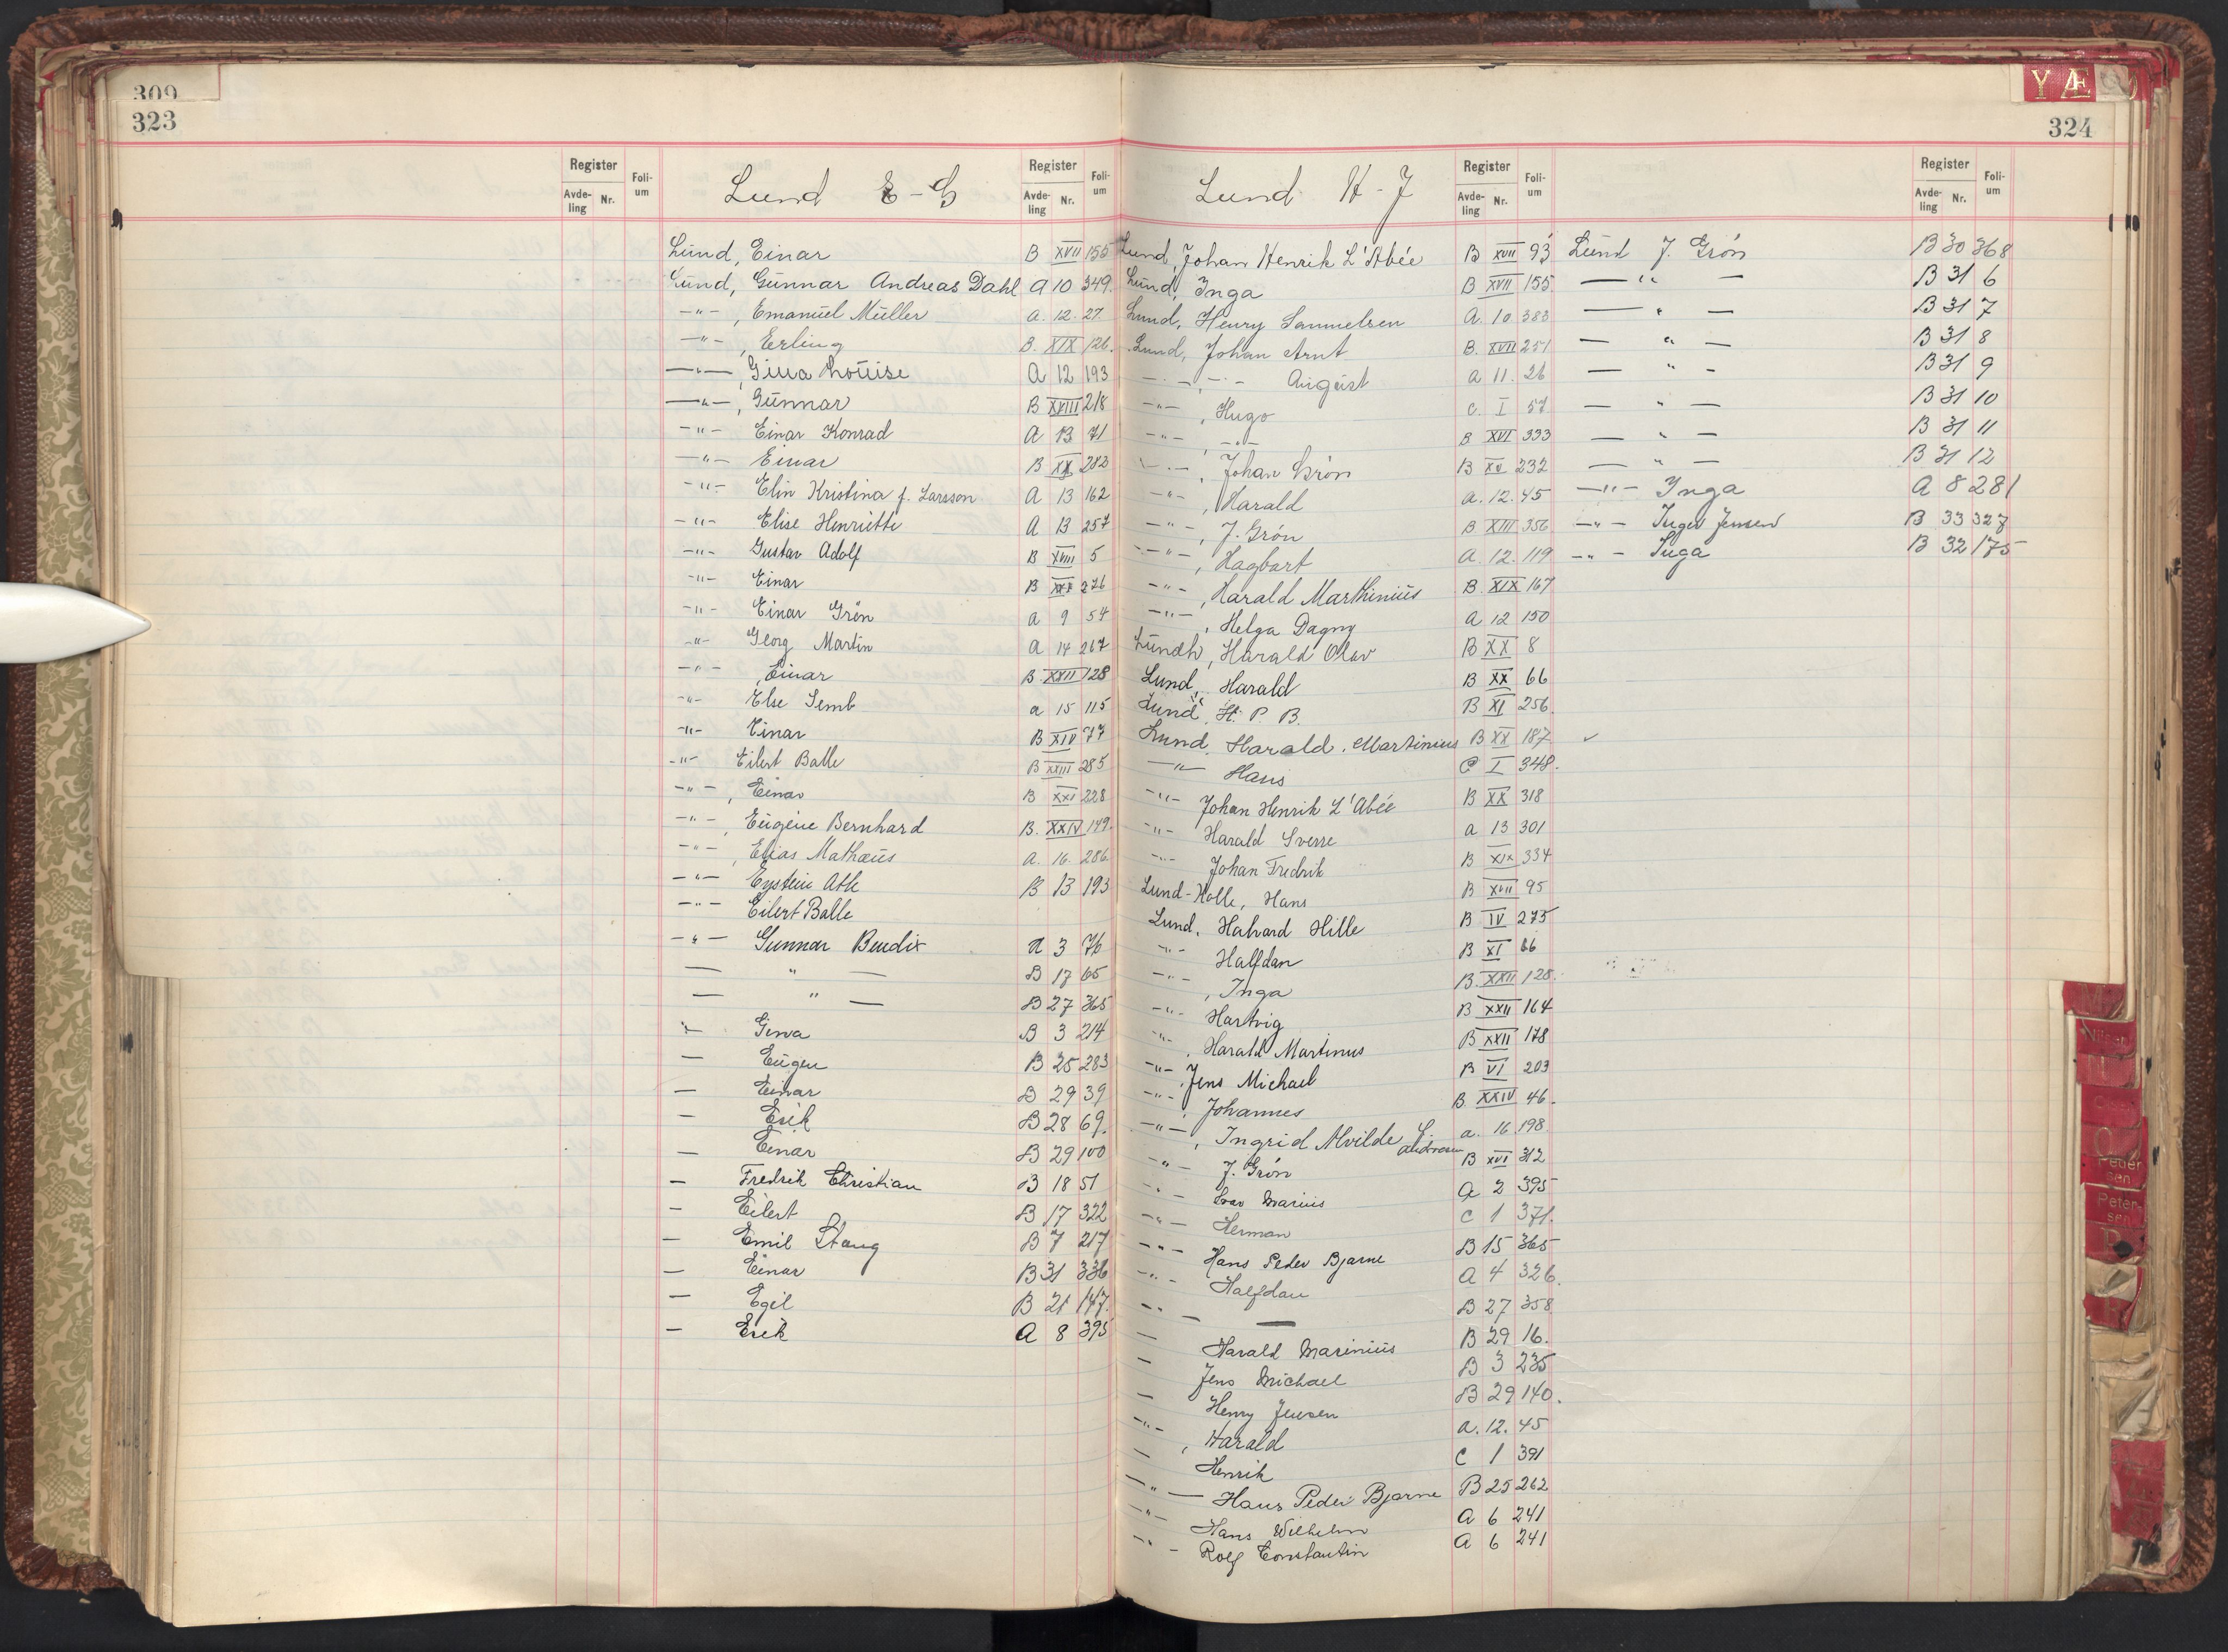 309
323
Register Foli-um
Avde-ling Nr.
Lund E-G
Register Foli-um
Avde-ling Nr.
Lund, Einar B XVII 155
Lund, Gunnar Andreas Dahl A 10 349.
-"- , Emanuel Müller A. 12. 27.
-"- , Erling B. XIX 126.
-"- , Gina Louise A 12 193
-"- , Gunnar B XVIII 218
-"- Einar Konrad A 13 71
-"- Einar B XX 282
-"- Elin Kristina f. Larsson A 13 162
-"- Elise Henriette A 13 257
-"- Gustav Adolf B XVIII 5
-"- Einar B 276
-"- Einar Grön A 9 54
-"- Georg Martin A 14 267
-"- , Einar B. XXII 128
-"- Else Semb a 15 115
-"- Einar B XIV 77
-"- Eilert Balle B XXIII 285
-"- , Einar B XXI 228
-"- , Eugene Bernhard B. XXIV 149.
-"- , Elias Mathæus A. 16. 286.
-"- Eystein Atle B 13 193
-"- Eilert Balle
-"- Gunnar Bendix A 3 76
— " — B 17 65
— " — B 27 365
-"- Gerva B 3 214
— Eugen B 25 283
— Einar B 29 39
— Erik B 28 69.
— Einar B 29 100
— Fredrik Christian B 18 51
— Eilert B 17 322
— Emil Stang B 7 217
— Einar B 31 336
— Egil B 21 147.
— Erik A 8 395
YÆ
324
Lund H-J
Register Foli-um
Avde-ling Nr.
Lund, Johan Henrik L'Abée B XVII 93
Lund, Inga B XVII 155
Lund, Henry Samuelsen A. 10 383
Lund, Johan Arnt B. XVII 251
-"- , -"- August A 11. 26
-"- , Hugo C. I 57
-"- -"- B XVI 333
-"- , Johan Grön B XV 232
-"- , Harald A. 12. 45
-"- , J. Grön B XIII 356
-"- , Hagbart A. 12. 119
-"- , Harald Marthinius B. XIX 167
-"- , Helga Dagny A 12 150
Lundh, Harald Olav B XX 8
Lund, Harald B XX 66
Lund, H. P. B. B XI 256.
Lund, Harald. Martinius B XX 187 ✓
-"- Hans C I 348.
-"- Johan Henrik L'Abée B XX 318
-"- Harald Sverre a 13 301
-"- Johan Fredrik B XIX 334
Lund-Kolle, Hans B XVII 95
Lund, Halvard Hille B IV 275
-"- Halfdan B XI 66
-"- , Inga B. XXII 128.
-"- Hartvig B XXII 164
-"- , Harald Martinus B XXII 178
-"- , Jens Michael B VI 203
-"- , Johannes B. XXIV 46.
-"- , Ingrid Alvilde a. 16. 198.
-"- J. Grön B XVI 312
-"- Ivar Marius A 2 395
-"- Herman C 1 371.
-"- Hans Peder Bjarne B 15 365
-"- Halfdan A 4 326.
-"- — B 27 358
— Harald Marinius B 29 16.
— Jens Michael B 3 235
— Henry Jensen B 29 140.
-"- , Harald A. 12. 45
— Henrik C 1 391
-"- Hans Peder Bjarne B 25 262
-"- Hans Wilhelm A 6 241
-"- Rolf Constantin A 6 241
Register Foli-um
Avde-ling Nr.
Lund J. Grön B 30 368
— " — B 31 6
— " — B 31 7
— " — B 31 8
— " — B 31 9
— " — B 31 10
— " — B 31 11
— " — B 31 12
-"- Inga A 8 281
-"- Inger Jensen B 33 327
-"- Inga B 32 175
Nilsen
O
Peder-sen
Peter-sen